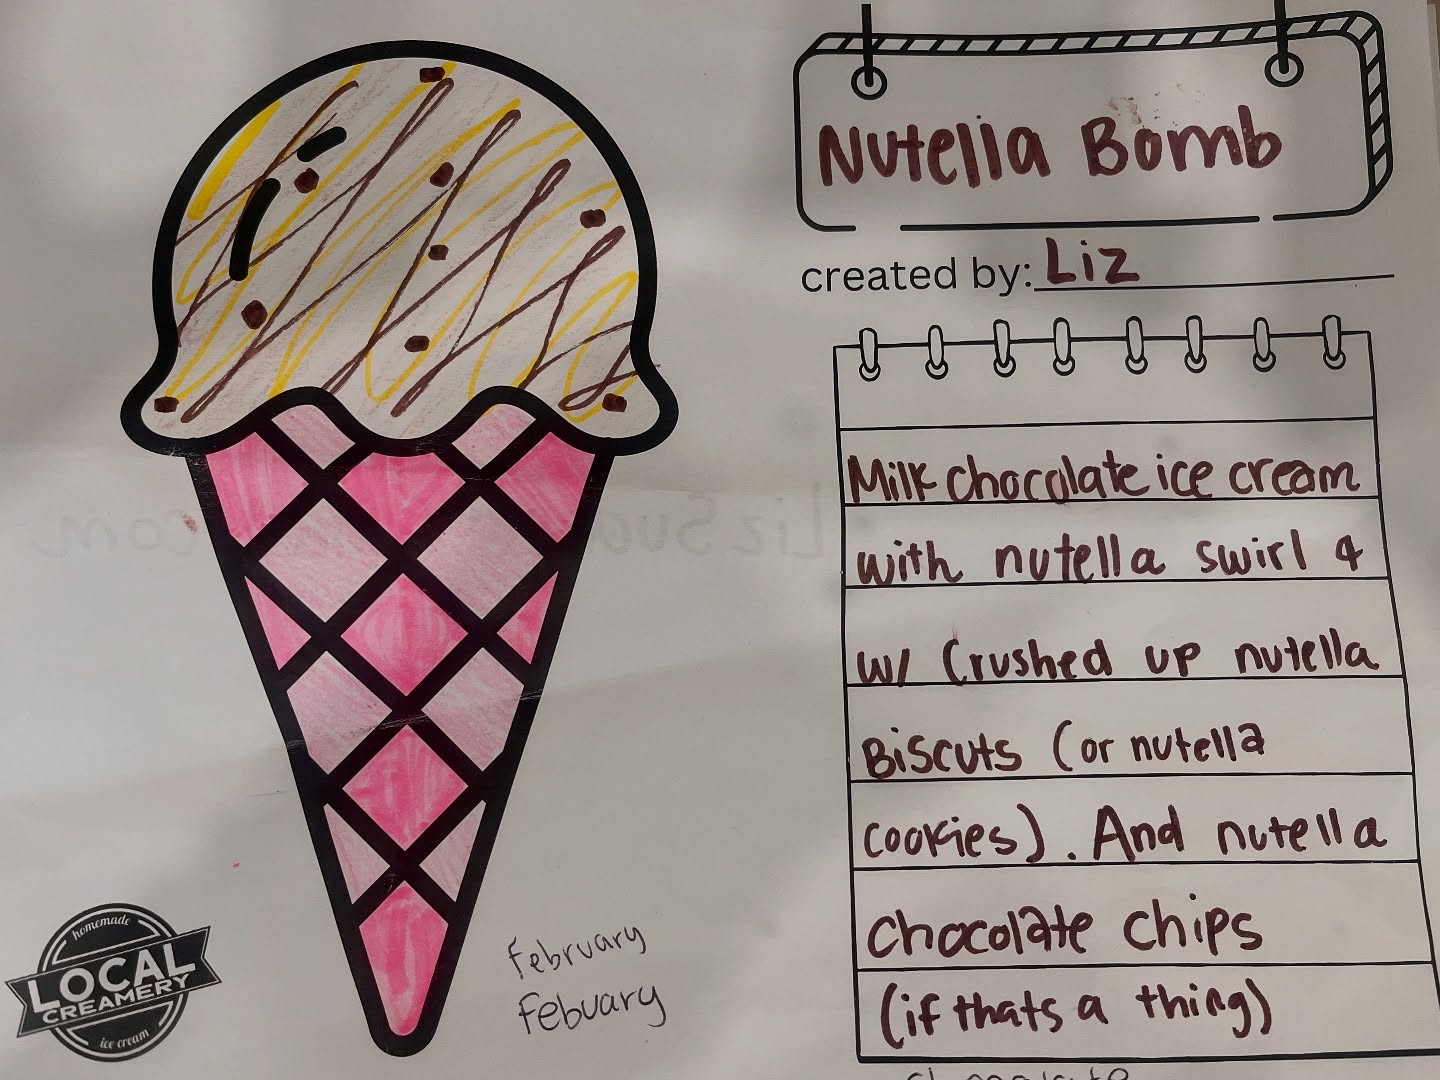 Nutella Bomb
created by: Liz
Milk chocolate ice cream
with nutella swirl &
w/ Crushed up nutella
Biscuts (or nutella
cookies). And nutella
chocolate chips
(if thats a thing)
February
Febuary
homemade
LOCAL
CREAMERY
ice cream